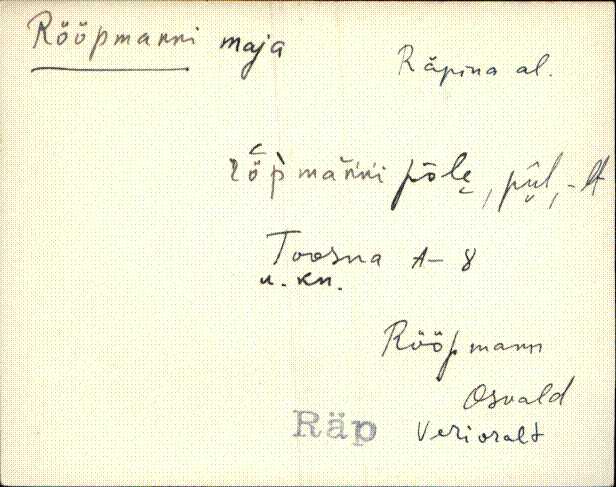 Rööpmanni maja
Räpina al.
rö̆pmańni põle̬, pül, -lt
Toosna A-8
u. kn.
Rööpmann
Osvald
Verioralt
Räp